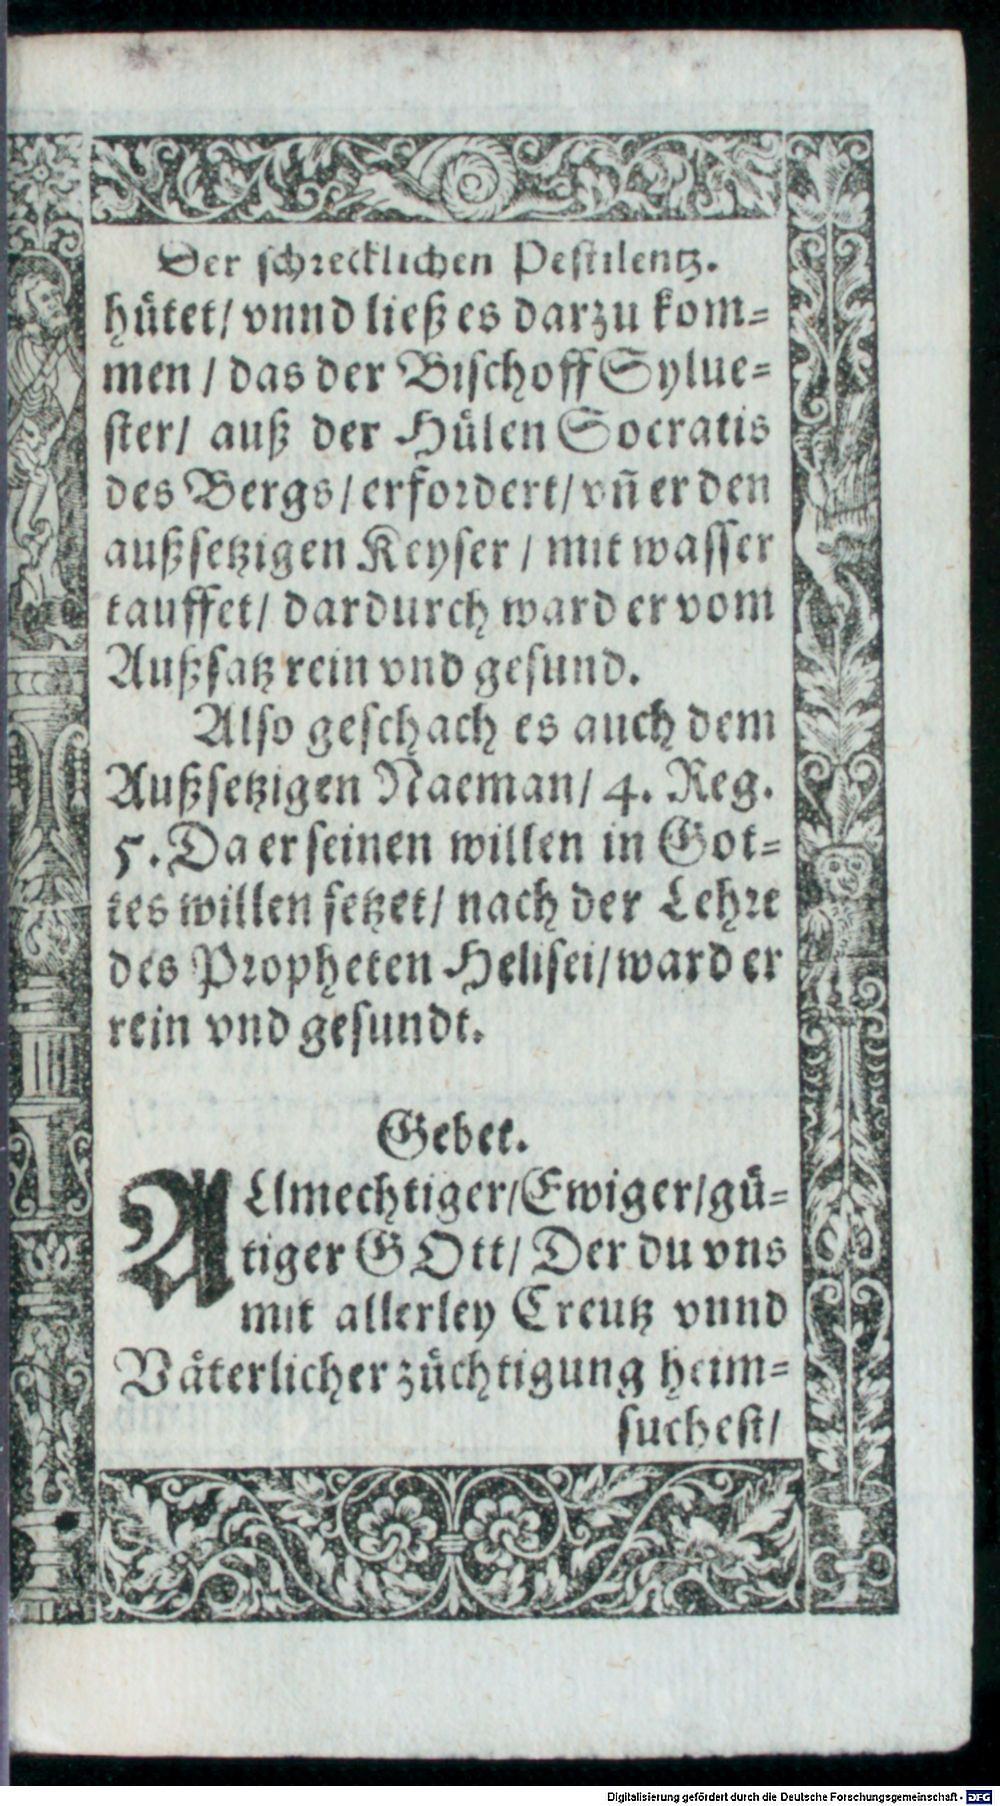 Der schrecklichen Pestilentz.
hütet/ vnnd ließ es darzu kom-
men / das der Bischoff Sylue-
ster/ auß der Hülen Socratis
des Bergs/ erfordert/ vñ er den
außsetzigen Keyser / mit wasser
tauffet/ dardurch ward er vom
Außsatz rein vnd gesund.
Also geschach es auch dem
Außsetzigen Naeman/ 4. Reg.
5. Da er seinen willen in Got-
tes willen setzet/ nach der Lehre
des Propheten Helisei/ ward er
rein vnd gesundt.
Gebet.
ALlmechtiger/ Ewiger/ gü-
tiger GOtt/ Der du vns
mit allerley Creutz vnnd
Väterlicher züchtigung heim-
suchest/
Digitalisierung gefördert durch die Deutsche Forschungsgemeinschaft - DFG